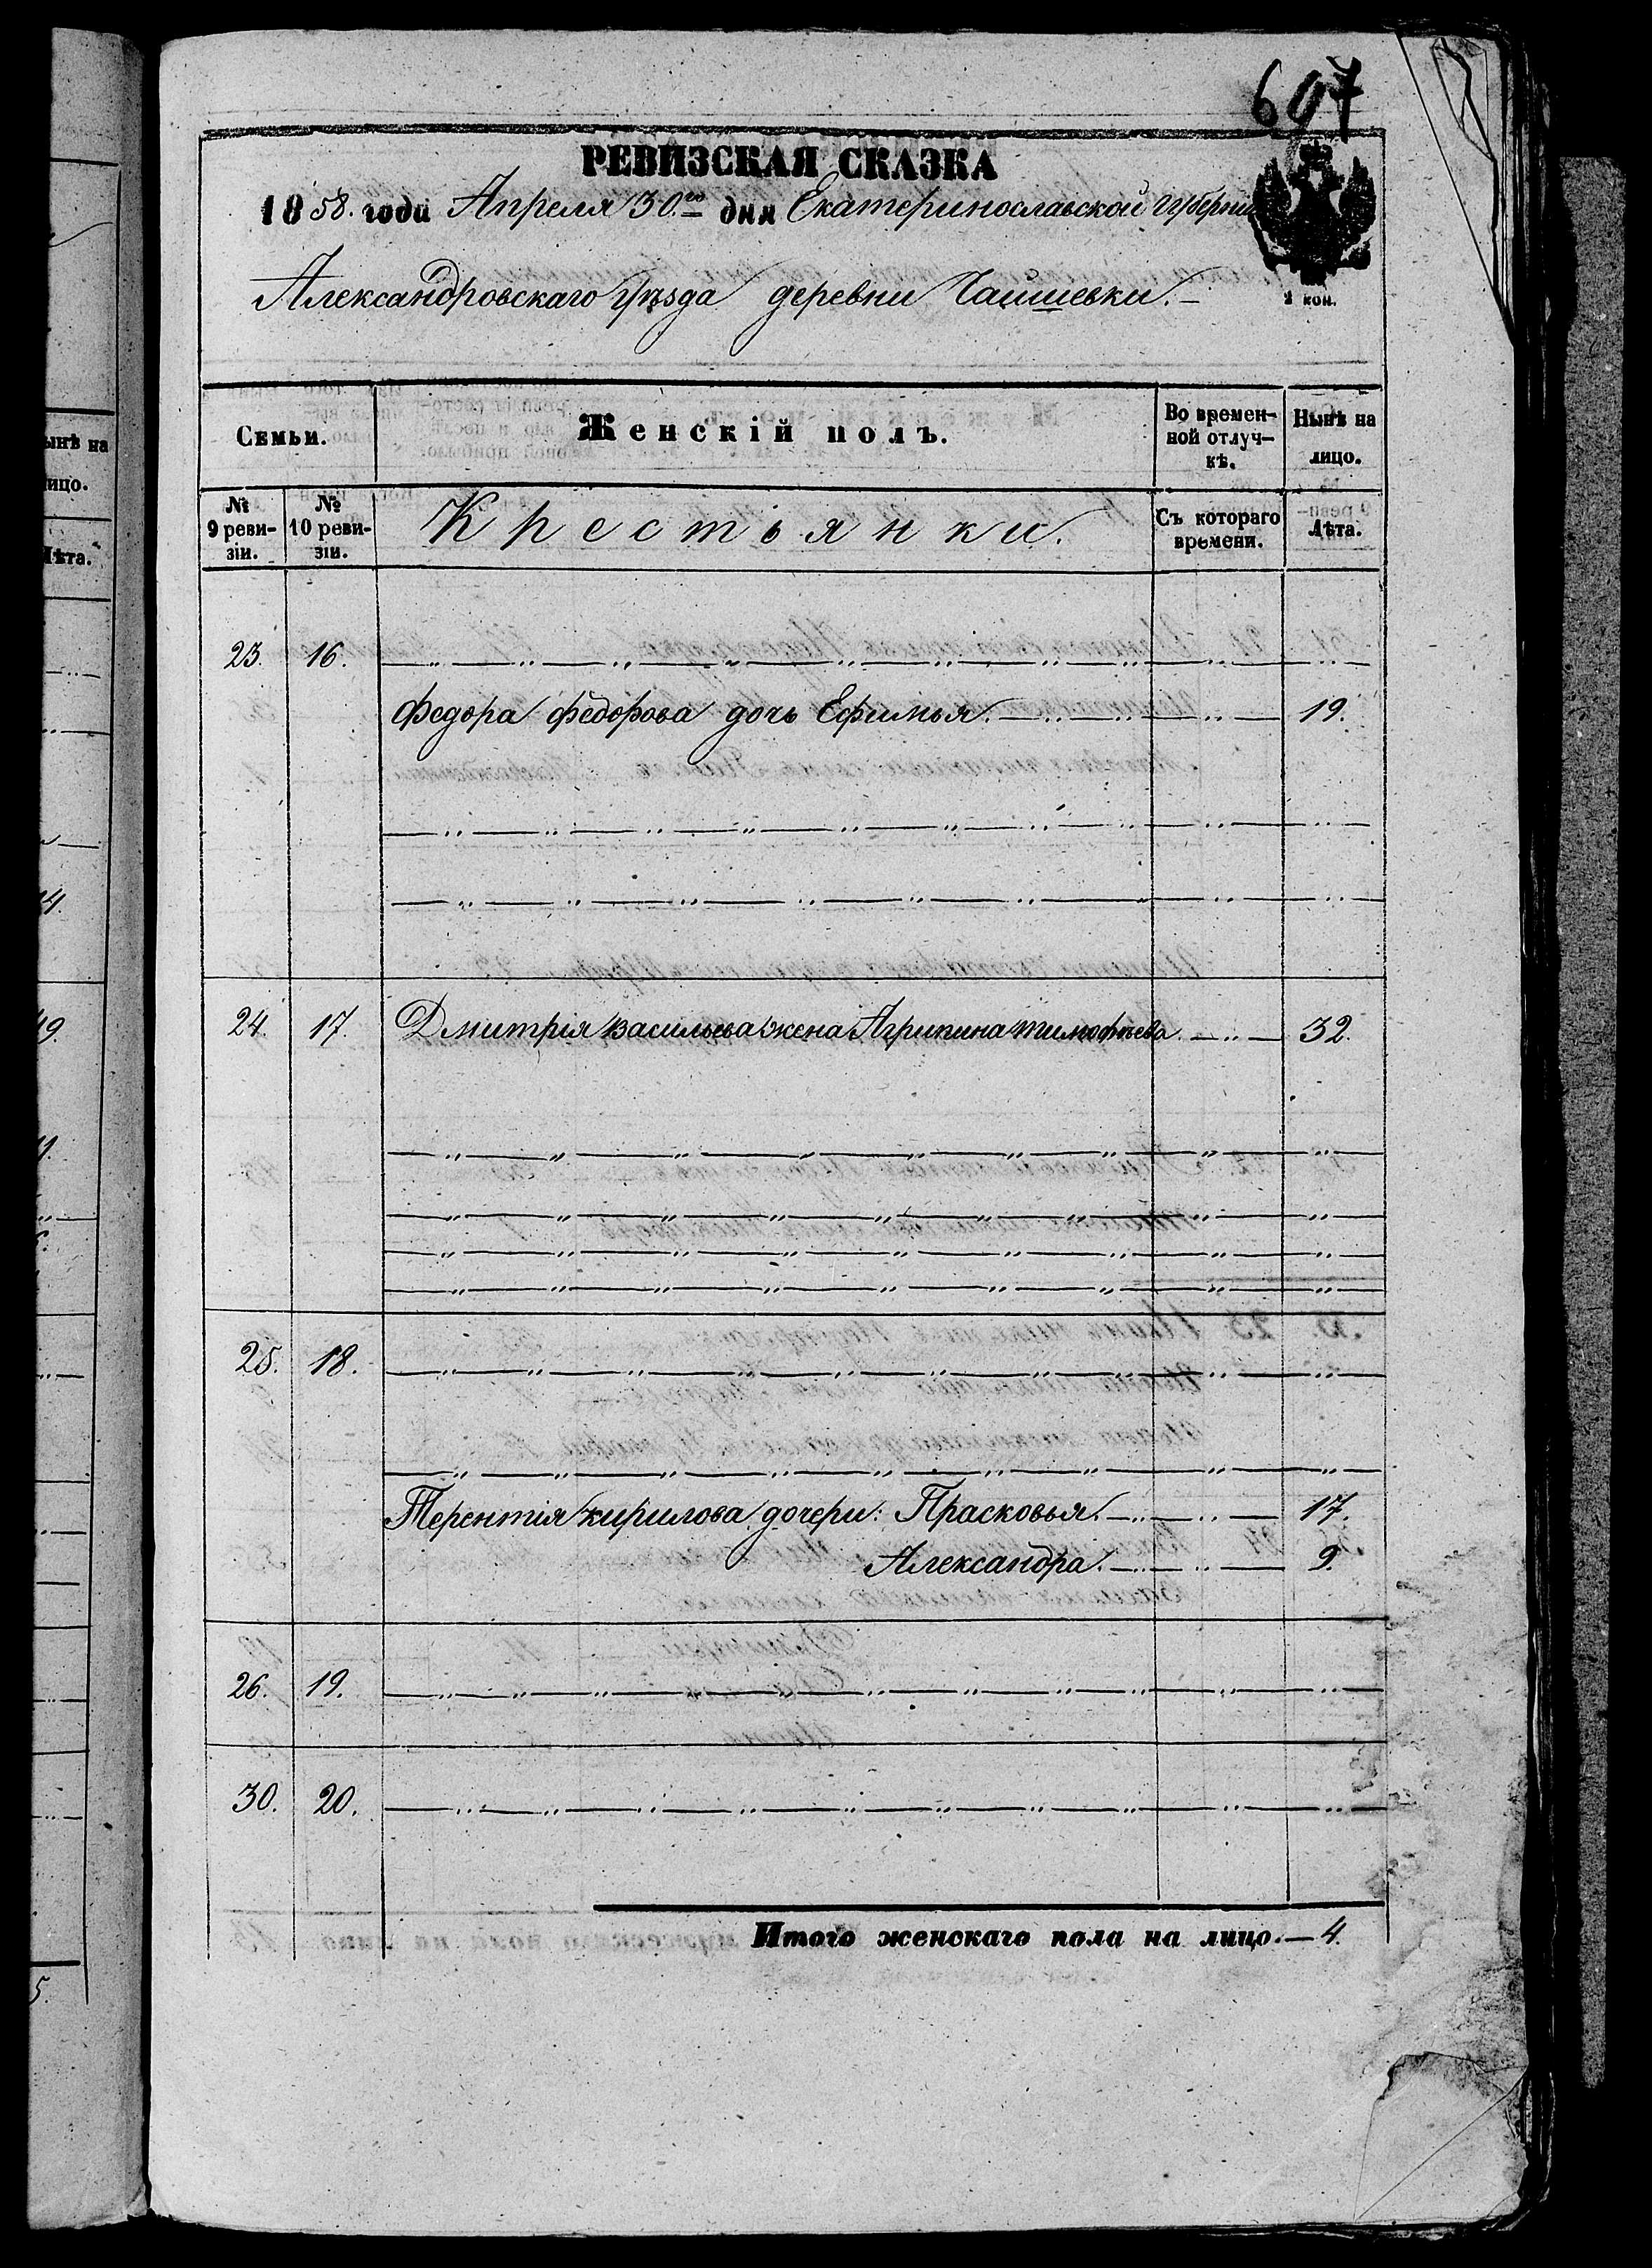 697
РЕВИЗСКАЯ СКАЗКА
1858. года Апреля 30.го дня Екатеринославской губернии
Александровскаго уѣзда деревни Чайшевки.
2 коп.
Семьи. Женскій полъ. Во времен-ной отлуч-кѣ. Нынѣ на лицо.
№ 9 реви-зіи. № 10 реви-зіи. Крестьянки. Съ котораго времени. Лѣта.
23. 16.
Федора Федорова дочь Ефимья. 19.
24. 17. Дмитрія Васильева жена Агрипина Тимофѣева. 32.
25. 18.
Терентія Кирилова дочери: Прасковья. 17.
Александра. 9.
26. 19.
30. 20.
Итого женскаго пола на лицо. 4.